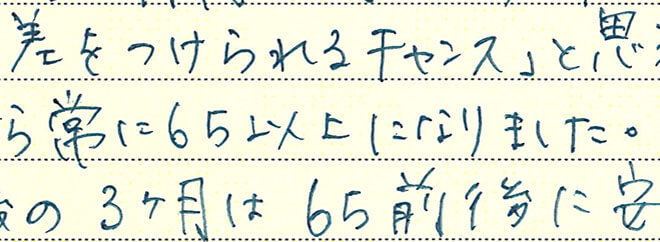 差をつけられるチャンス」と思
ら常に65以上になりました。
の3ヶ月は65前後に安